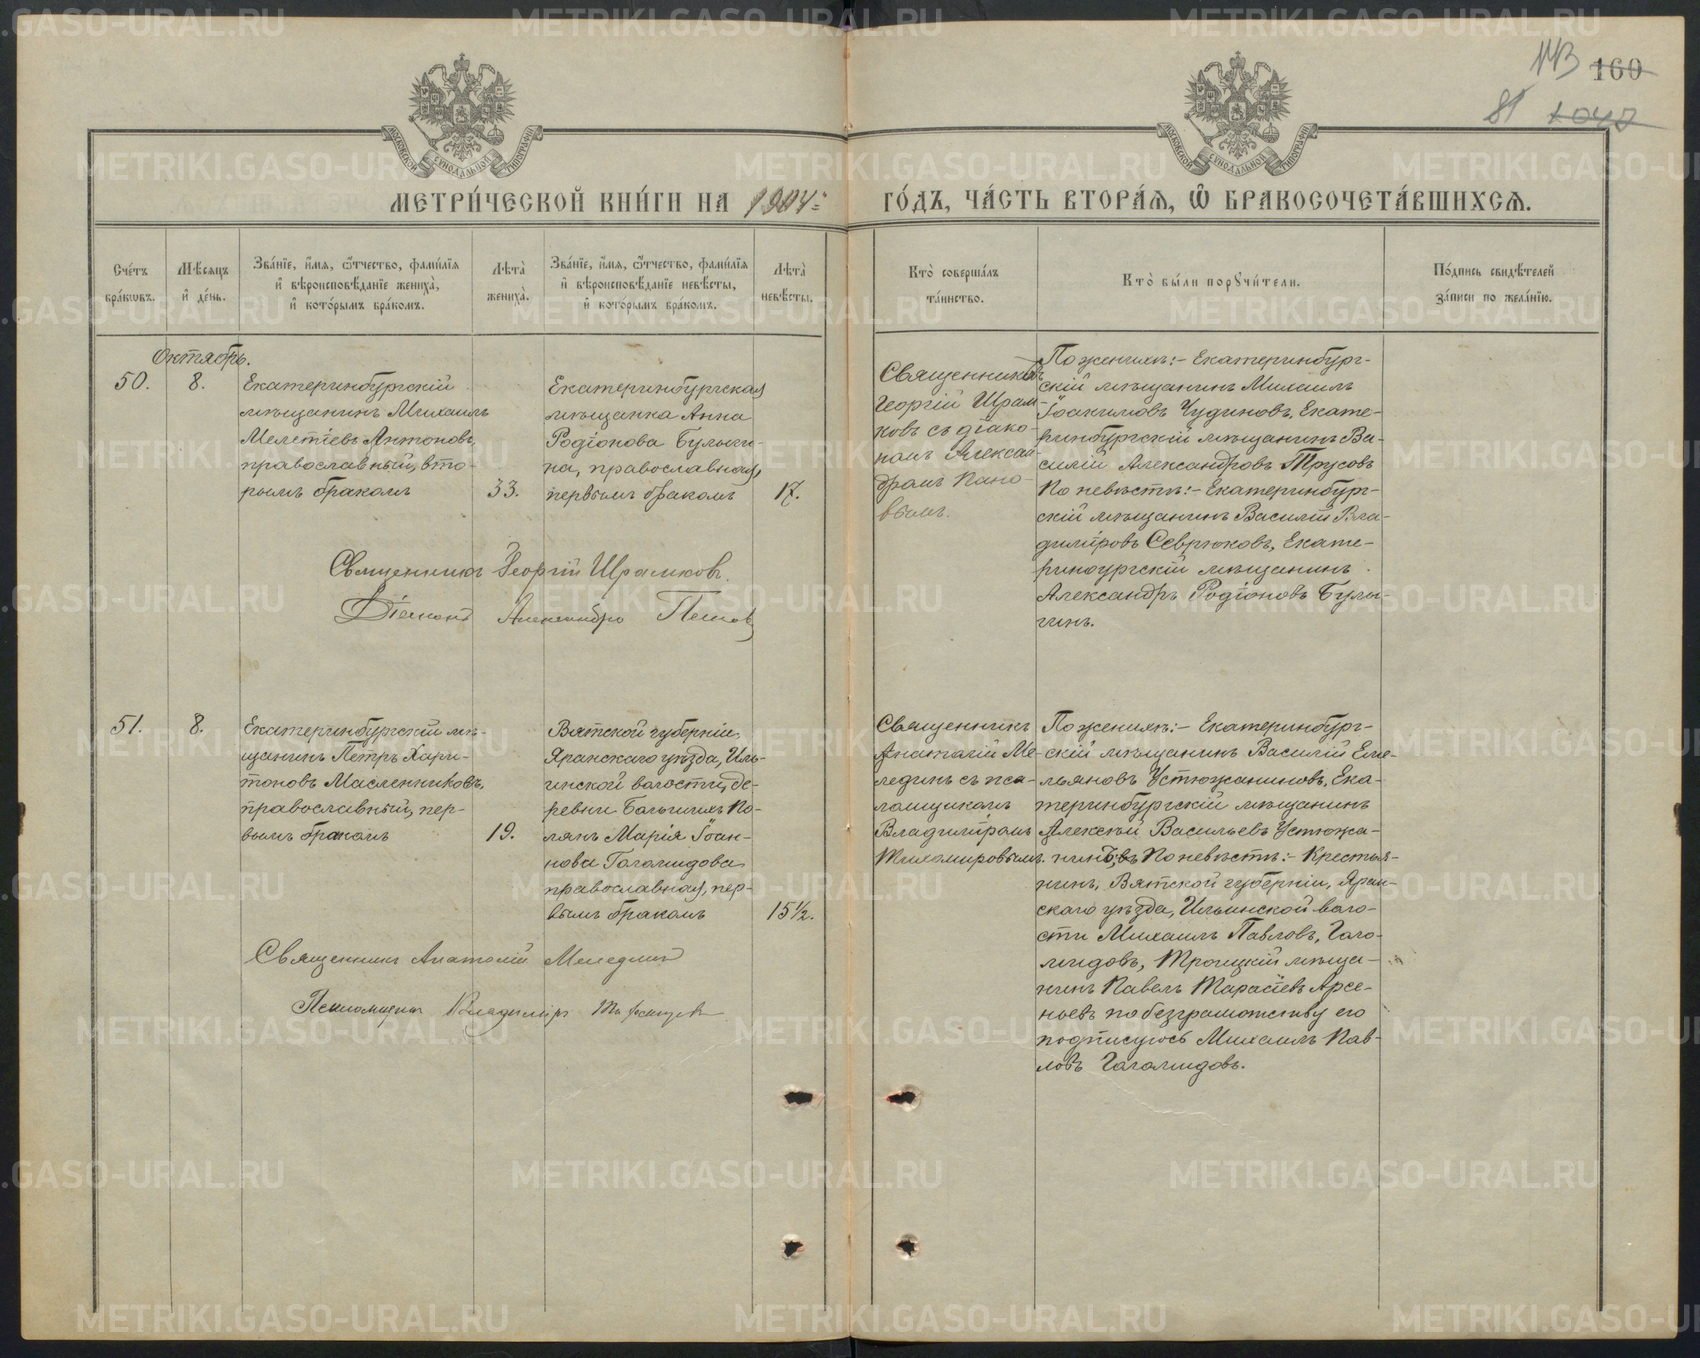 143 160
81 1040
МОСКОВСКОЙ СѴНОДАЛЬНОЙ ТИПОГРАФІИ
МОСКОВСКОЙ СѴНОДАЛЬНОЙ ТИПОГРАФІИ
МЕТРИ́ЧЕСКОЙ КНИ́ГИ НА 1904 = ГО́ДЪ, ЧА́СТЬ ВТОРА́Ѧ, Ѽ БРАКОСОЧЕТА́ВШИХСѦ.
Сче́тъ бра́кѡвъ.
Мѣ́сѧцъ и҆ де́нь.
Зва́нїе, и҆́мѧ, ѻ҆́тчество, фами́лїѧ и҆ вѣроисповѣ́данїе жениха̀, и҆ кото́рымъ бра́комъ.
Лѣта̀ жениха̀.
Зва́нїе, и҆́мѧ, ѻ҆́тчество, фами́лїѧ и҆ вѣроисповѣ́данїе невѣ́сты, и҆ кото́рымъ бра́комъ.
Лѣта̀ невѣ́сты.
Кто̀ соверша́лъ та́инство.
Кто̀ бы́ли порꙋчи́тели.
По́дпись свидѣ́телей за́писи по жела́нїю.
Октябрь.
50.
8.
Екатеринбургскій
мѣщанинъ Михаилъ
Мелетіевъ Антоновъ,
православный, вто-
рымъ бракомъ
33.
Екатеринбургская
мѣщанка Анна
Родіонова Булыги-
на, православная,
первымъ бракомъ
17.
Священникъ
Георгій Шрам-
ковъ съ діако-
номъ Алексан-
дромъ Попо-
вымъ.
По женихѣ:- Екатеринбург-
скій мѣщанинъ Михаилъ
Іоакимовъ Чудиновъ, Екате-
ринбургскій мѣщанинъ Ва-
силій Александровъ Трусовъ
По невѣстѣ:- Екатеринбург-
скій мѣщанинъ Василій Вла-
диміровъ Севрюковъ, Екате-
ринбургскій мѣщанинъ
Александръ Родіоновъ Булы-
гинъ.
Священникъ Георгій Шрамковъ.
Діаконъ Александръ Поповъ
51.
8.
Екатеринбургскій мѣ-
щанинъ Петръ Хари-
тоновъ Масленниковъ,
православный, пер-
вымъ бракомъ
19.
Вятской губерніи,
Яранскаго уѣзда, Иль-
инской волости, де-
ревни Большихъ По-
лянъ Марія Іоан-
нова Гоголидова
православная, пер-
вымъ бракомъ
15½.
Священникъ
Анатолій Ме-
лединъ съ пса-
ломщикомъ
Владиміромъ
Тихомировымъ.
По женихѣ:- Екатеринбург-
скій мѣщанинъ Василій Еме-
льяновъ Устюжаниновъ, Ека-
теринбургскій мѣщанинъ
Алексѣй Васильевъ Устюжа-
ниновъ По невѣстѣ:- Крестья-
нинъ, Вятской губерніи, Яран-
скаго уѣзда, Ильинской воло-
сти Михаилъ Павловъ, Гого-
лидовъ, Троицкій мѣща-
нинъ Павелъ Тарасіевъ Арсе-
ньевъ по безграмотству его
подписуюсь Михаилъ Пав-
ловъ Гоголидовъ.
Священникъ Анатолій Меледин
Псаломщикъ Владиміръ
METRIKI.GASO-URAL.RU